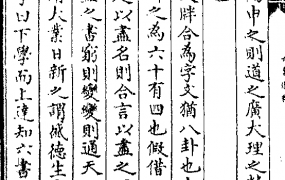 中之則道之廣大理之
牉合為字文猶八卦也
之為六十有四也假借
之以盡名則合言以盡之
之書窮則變變則通天
大業日新之謂盛德生
曰下學而上達知六書